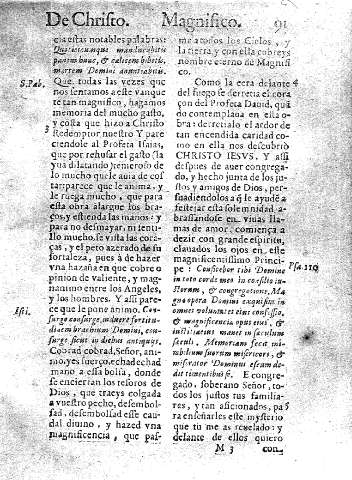 De Christo. Magnifico. 91
cia estas notables palabras:
Quotiescunque manducabitis
panem hunc, & calicem bibetis,
mortem Domini annuntiabitis.
S. Pab. Que todas las vezes que
nos sentamos a este vanque
te tan magnifico, hagamos
memoria del mucho gasto,
y costa que hizo a Christo
3 Redemptor nuestro Y pare
ciendole al Propheta Isaias,
que por rehusar el gasto (la
ya dilatando) temeroso de
lo mucho que le auia de cos
tar parece que le anima, y
le ruega mucho, que para
esta obra alargue los bra-
ços, y estienda las manos: y
para no desmayar, ni sentir
lo mucho, se vista las cora-
ças, y el peto azerado de su
fortaleza, pues à de hazer
vna hazaña en que cobre o
pinion de valiente, y mag-
nanimo entre los Angeles,
y los hombres. Y assi pare-
ce que le pone animo. Con-
surge consurge, induere fortitu-
diem brachium Domini, con-
surge sicut in diebus antiquis.
Cobrad cobrad, Señor, ani-
mo, y esfuerço, echad echad
mano a essa bolsa, donde
se encierran los tesoros de
Dios, que traeys colgada
a vuestro pecho, desembol-
sad, desembolsad esse cau-
dal diuino, y hazed vna
magnificencia, que pas-
me a todos los Cielos, y
la tierra y con ella cubreys
nombre eterno de Magnifi
co.
Como la cera delante 4
del fuego se derretia el cora
çon del Profeta Dauid, quã
do contemplaua en esta o-
bra: derretialo el ardor de
tan encendida caridad co-
mo en ella nos descubriò
CHRISTO IESVS, Y assi
despues de auer congrega-
do, y hecho junta de los jus-
tos y amigos de Dios, per-
suadiendolos a q̃ le ayudẽ a
festejar esta solemnidad a-
brasandose en viuas lla-
mas de amor, comença a
dezir con grande espiritu,
clauados los ojos en este
magnificentissimo Princi-
pe: Confitebor tibi Domine Psa. 110
in toto corde meo in consilio iu-
storum, & congregatione, Ma
gna opera Domini exquisita in
omnes voluntates eius confessio,
& magnificencia opus eius, &
iustitia eius manet in sæculum
sæculi. Memoriam fecit mi-
rabilium suorum misericors, &
miserator Dominus escam de-
dit timentibus se. E congre-
gado, soberano Señor, to-
dos los justos tus familia-
res, y tan aficionados, pa 5
ra enseñarles este mysterio
que tu me as reuelado: y
delante de ellos quiero
M 3 con-